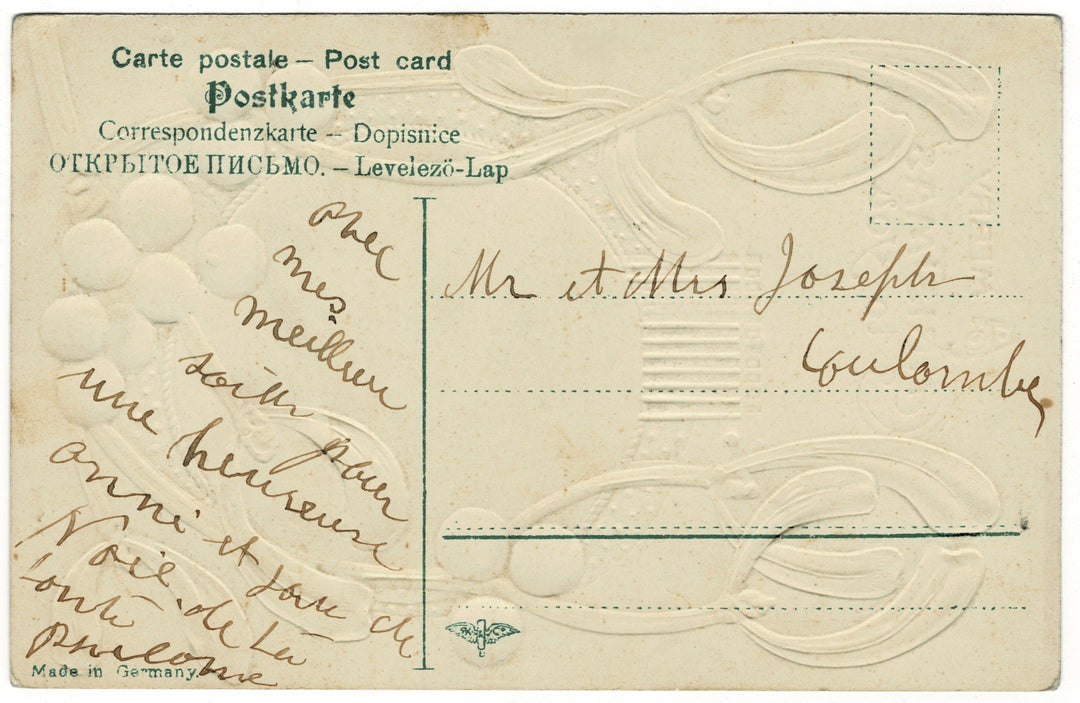 Carte postale — Post card
Postkarte
Correspondenzkarte — Dopisnice
ОТКРЫТОЕ ПИСЬМО. — Levelező-Lap
avec
mes
meilleur
pour
une heureuse
anné et jour de
Noil de la
Mr et Mrs Joseph
Coulombe
K & Co
Made in Germany.